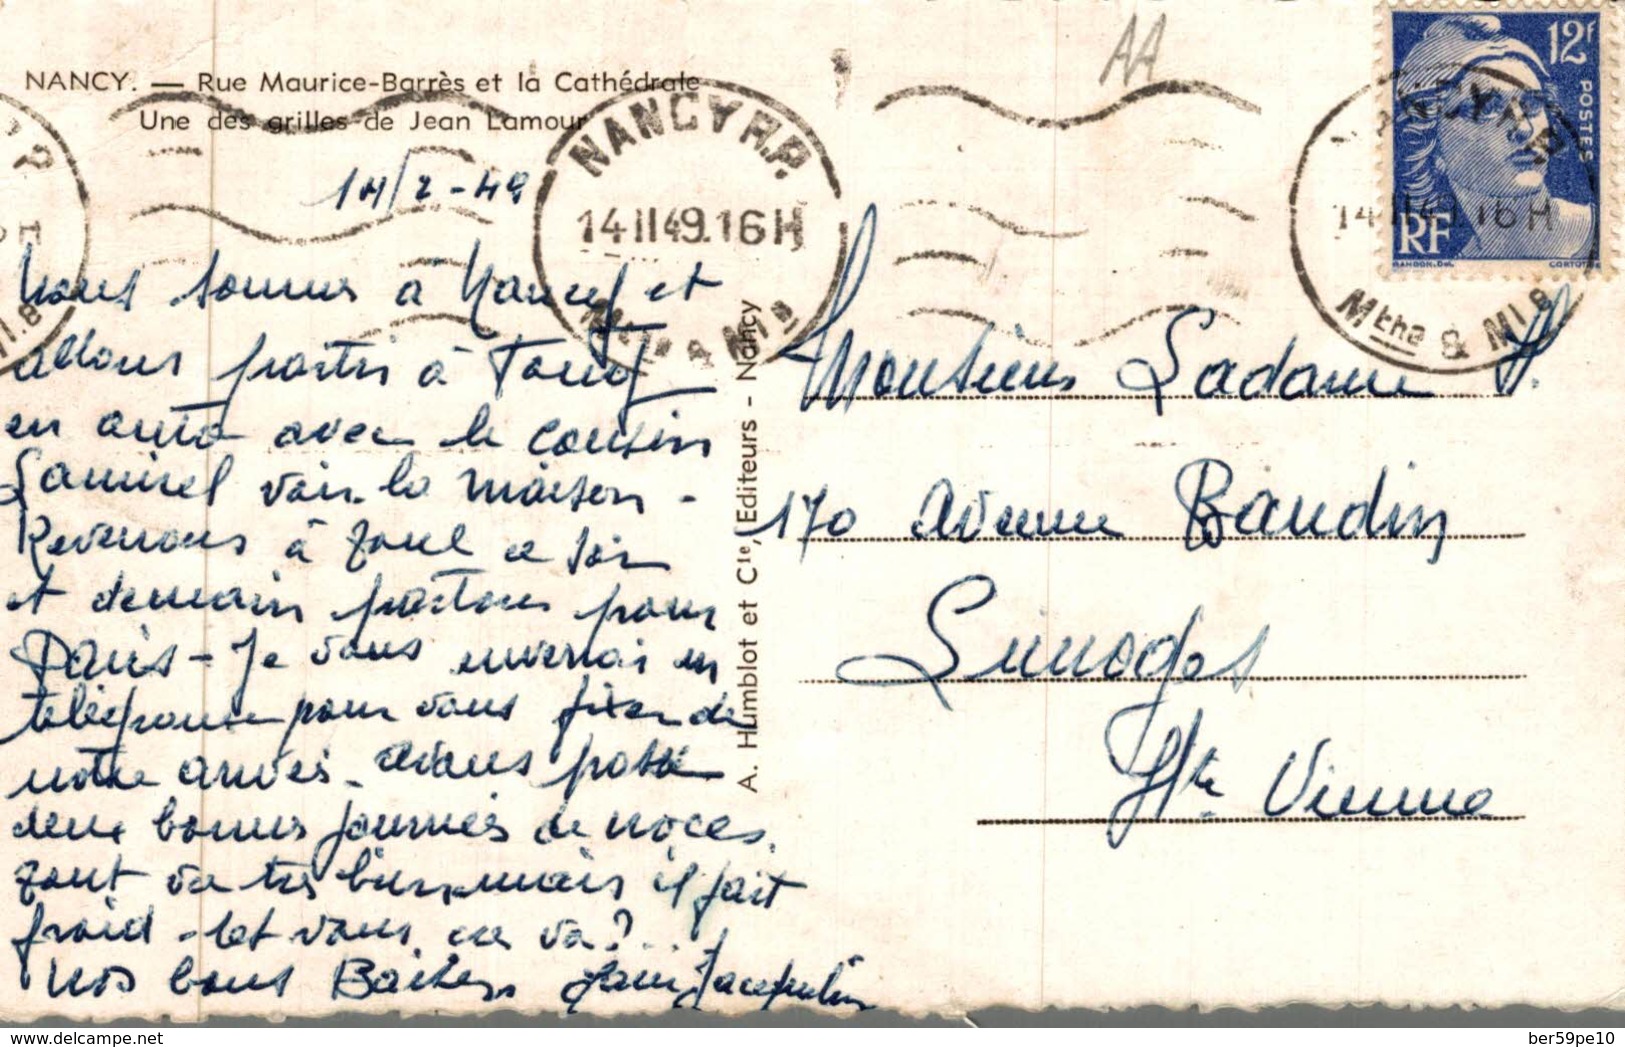 NANCY. — Rue Maurice-Barrès et la Cathédrale
Une des grilles de Jean Lamour
14/2-49
Nous sommes à Nancy et
allons partir à
en auto avec le cousin
voir la maison -
Revenons à ce soir
et demain partons pour
Paris - Je vous enverrai un
télégramme pour vous fixer de
notre arrivée. avons passé
deux bonnes journées de noces.
Tout va très bien, mais il fait
froid - et vous, ça va? ...
Nos bons Baisers Jacqueline
A. Humblot et Cie, Editeurs - Nancy
AA
NANCY R.P.
14 II 49. 16H
Mthe & Mlle
NANCY R.P.
14 II 49. 16H
Mthe & Mlle
12F
POSTES
RF
GANDON.Del.
CORTOT.Sc
Monsieur Ladame H.
170 Avenue Baudin
Limoges
Hte Vienne
ber59pe10